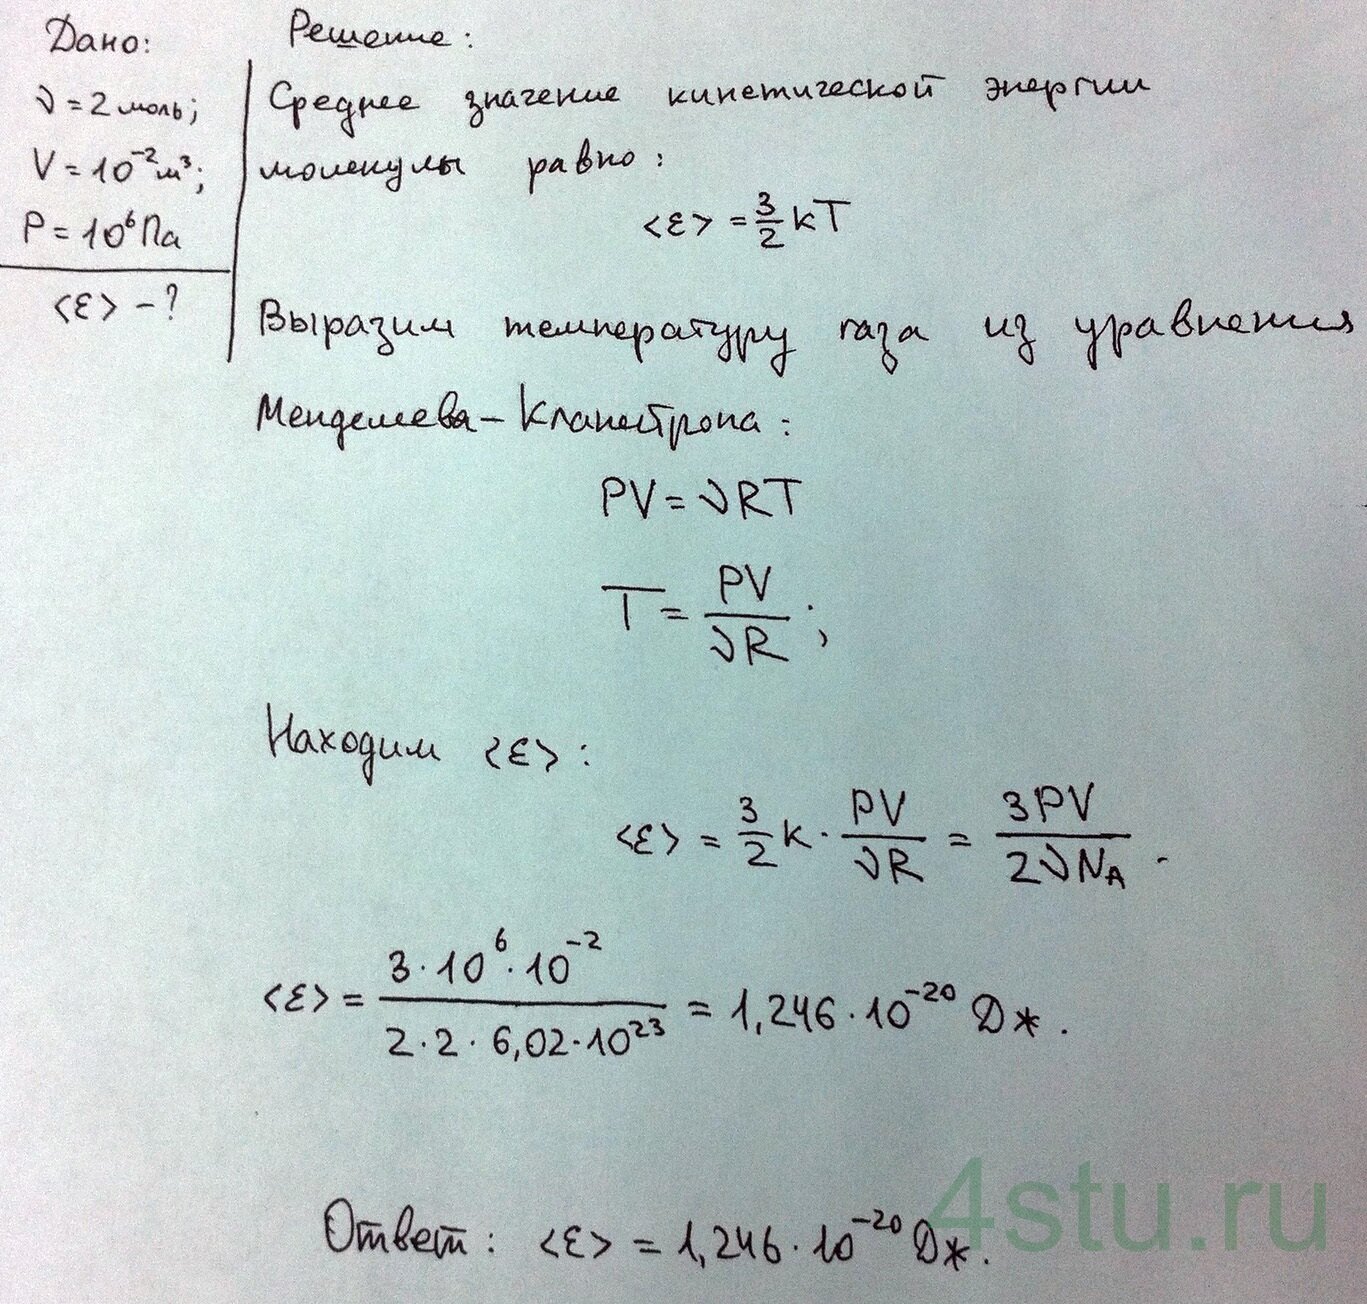 Дано:
ν = 2 моль;
V = 10⁻² м³;
P = 10⁶ Па
<ε> - ?
Решение:
Среднее значение кинетической энергии
молекулы равно:
<ε> = 3/2 kT
Выразим температуру газа из уравнения
Менделеева - Клапейрона:
PV = νRT
T = PV/νR ;
Находим <ε> :
<ε> = 3/2 k · PV/νR = 3PV/2νN_A .
<ε> = 3·10⁶·10⁻²/2·2·6,02·10²³ = 1,246·10⁻²⁰ Дж.
Ответ: <ε> = 1,246·10⁻²⁰ Дж.
4stu.ru